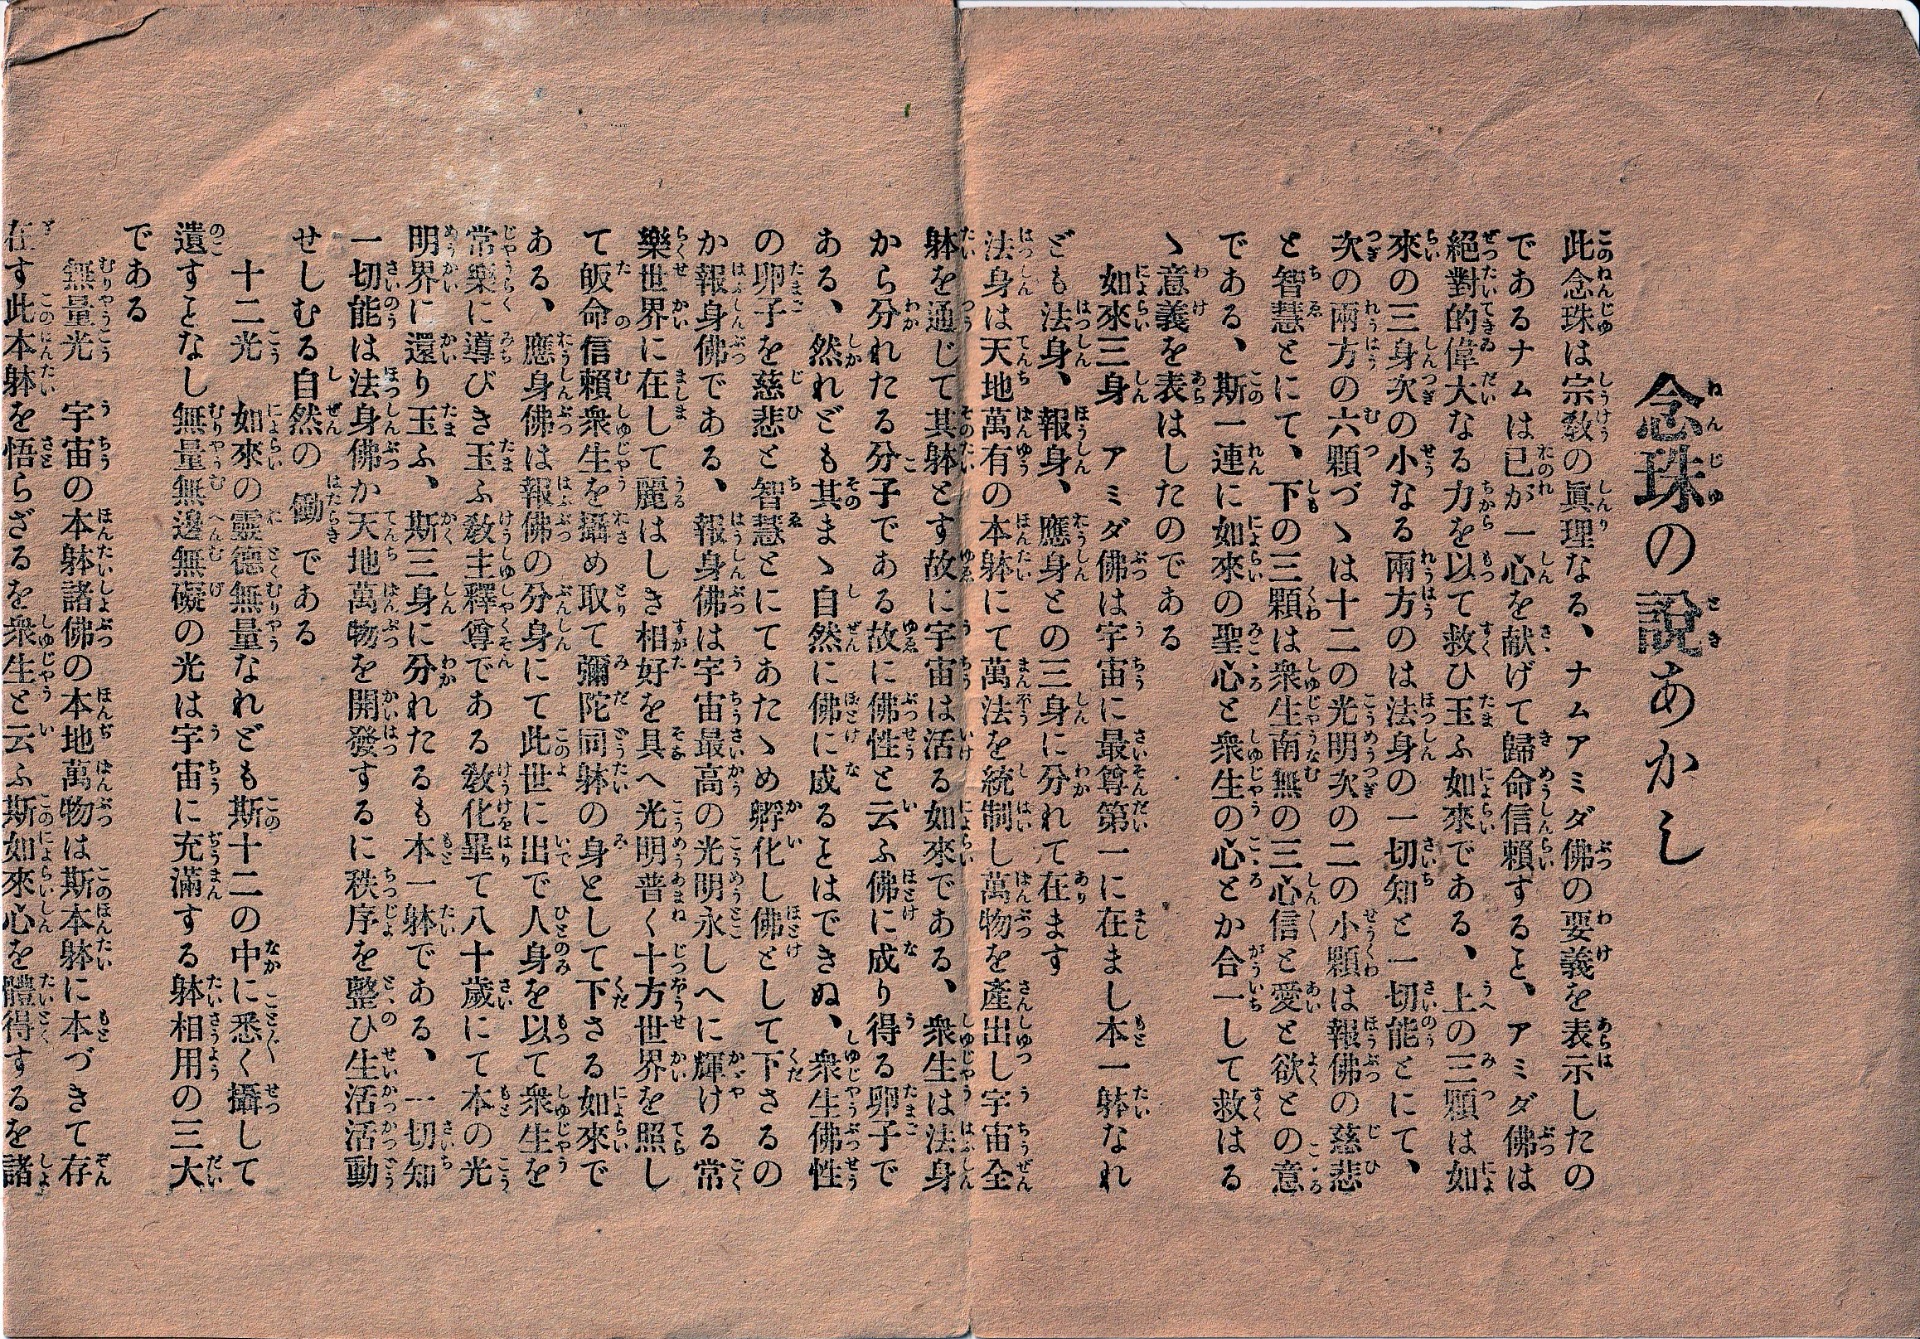 念珠の說あかし
此念珠は宗敎の眞理なる、ナムアミダ佛の要義を表示したの
であるナムは已が一心を献げて歸命信賴すると、アミダ佛は
絕對的偉大なる力を以て救ひ玉ふ如來である、上の三顆は如
來の三身次の小なる兩方のは法身の一切知と一切能とにて、
次の兩方の六顆づゝは十二の光明次の二の小顆は報佛の慈悲
と智慧とにて、下の三顆は衆生南無の三心信と愛と欲との意
である、斯一連に如來の聖心と衆生の心とか合一して救はる
ゝ意義を表はしたのである
如來三身　アミダ佛は宇宙に最尊第一に在まし本一躰なれ
ども法身、報身、應身との三身に分れて在ます
法身は天地萬有の本躰にて萬法を統制し萬物を產出し宇宙全
躰を通じて其躰とす故に宇宙は活る如來である、衆生は法身
から分れたる分子である故に佛性と云ふ佛に成り得る卵子で
ある、然れども其まゝ自然に佛に成るとはできぬ、衆生佛性
の卵子を慈悲と智慧とにてあたゝめ孵化し佛として下さるの
か報身佛である、報身佛は宇宙最高の光明永しへに輝ける常
樂世界に在して麗はしき相好を具へ光明普く十方世界を照し
て皈命信賴衆生を攝め取て彌陀同躰の身として下さる如來で
ある、應身佛は報佛の分身にて此世に出で人身を以て衆生を
常樂に導びき玉ふ敎主釋尊である敎化畢て八十歲にて本の光
明界に還り玉ふ、斯三身に分れたるも本一躰である、一切知
一切能は法身佛か天地萬物を開發するに秩序を整ひ生活活動
せしむる自然の働である
十二光　如來の靈德無量なれども斯十二の中に悉く攝して
遺すとなし無量無邊無礙の光は宇宙に充滿する躰相用の三大
である
無量光　宇宙の本躰諸佛の本地萬物は斯本躰に本づきて存
在す此本躰を悟らざるを衆生と云ふ斯如來心を體得するを諸